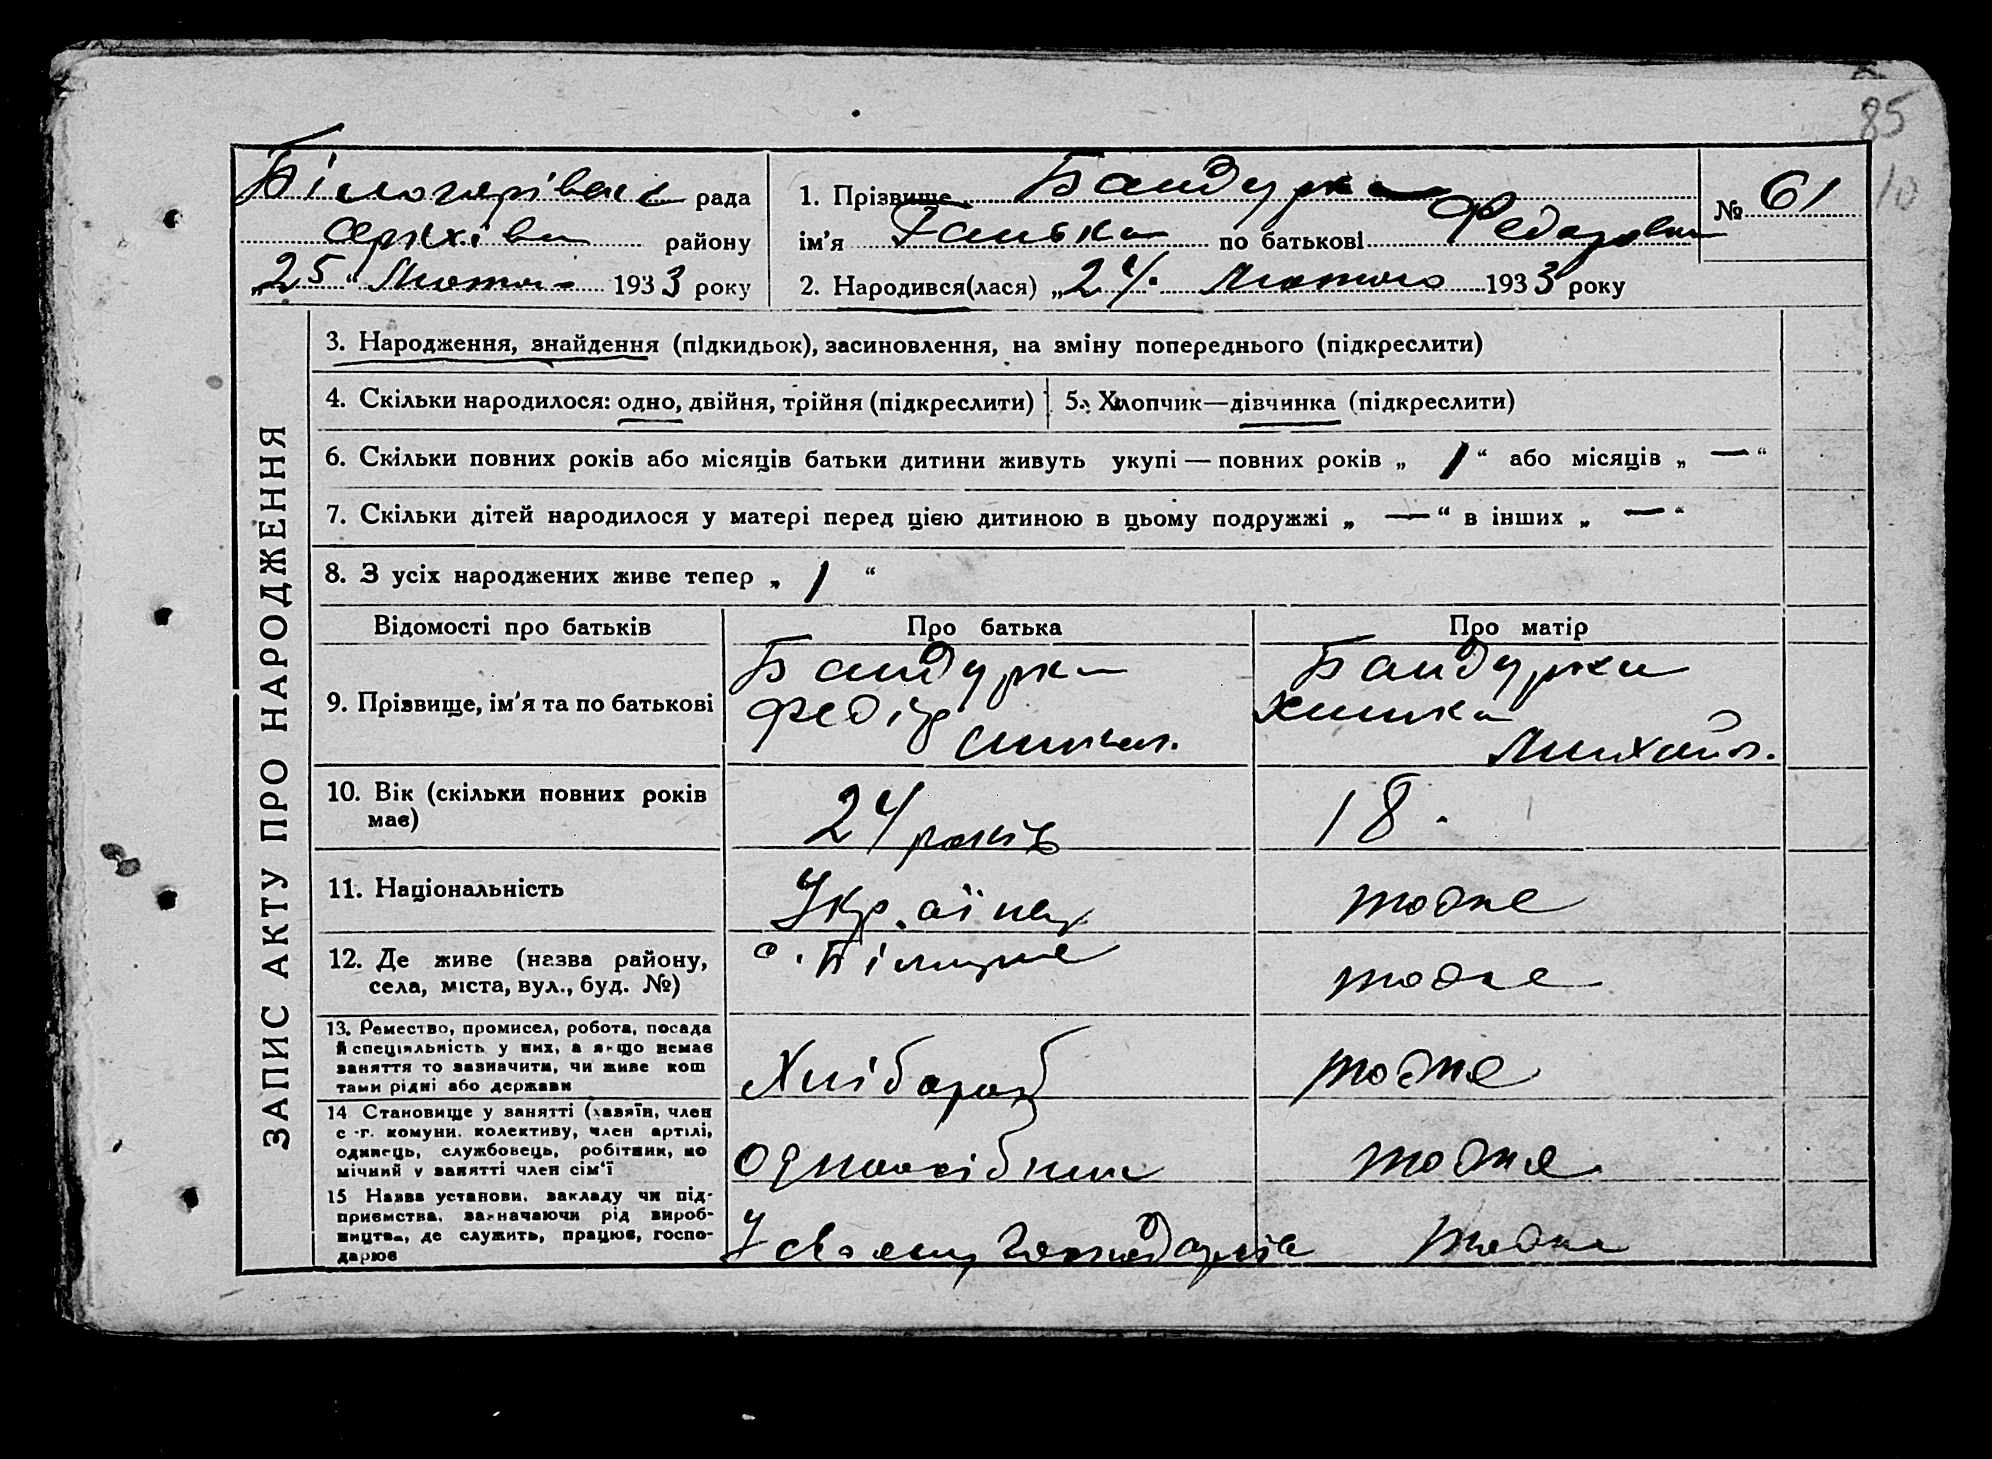 85
10
рада
району
„25“ Лютого 1933 року
1. Прізвище Бандурка
ім'я Ганька по батькові Федоровна
2. Народився(лася) „24. Лютого 1933 року
№ 61
ЗАПИС АКТУ ПРО НАРОДЖЕННЯ
3. Народження, знайдення (підкидьок), засиновлення, на зміну попереднього (підкреслити)
4. Скільки народилося: одно, двійня, трійня (підкреслити)
5. Хлопчик—дівчинка (підкреслити)
6. Скільки повних років або місяців батьки дитини живуть укупі — повних років „ 1 “ або місяців „ — “
7. Скільки дітей народилося у матері перед цією дитиною в цьому подружжі „ — “ в інших „ — “
8. З усіх народжених живе тепер „ 1 “
Відомості про батьків
Про батька
Про матір
9. Прізвище, ім'я та по батькові
Бандурка
Федір
Бандурка
Михайл.
10. Вік (скільки повних років
має)
24 років
18.
11. Національність
Укр.аїнец
тоже
12. Де живе (назва району,
села, міста, вул., буд. №)
с.
тоже
13. Ремество, промисел, робота, посада
й спеціяльність у них, а якщо немає
заняття то зазначити, чи живе кош
тами рідні або держави
Хлібороб
тоже
14 Становище у занятті (хазяїн, член
с.-г. комуни, колективу, член артілі,
одинець, службовець, робітник, по
мічний у занятті член сім'ї
Одноосібник
тоже
15 Назва установи, закладу чи під-
приємства, зазначаючи рід вироб-
ництва, де служить, працює, госпо-
дарює
У своему Господарстві
тоже